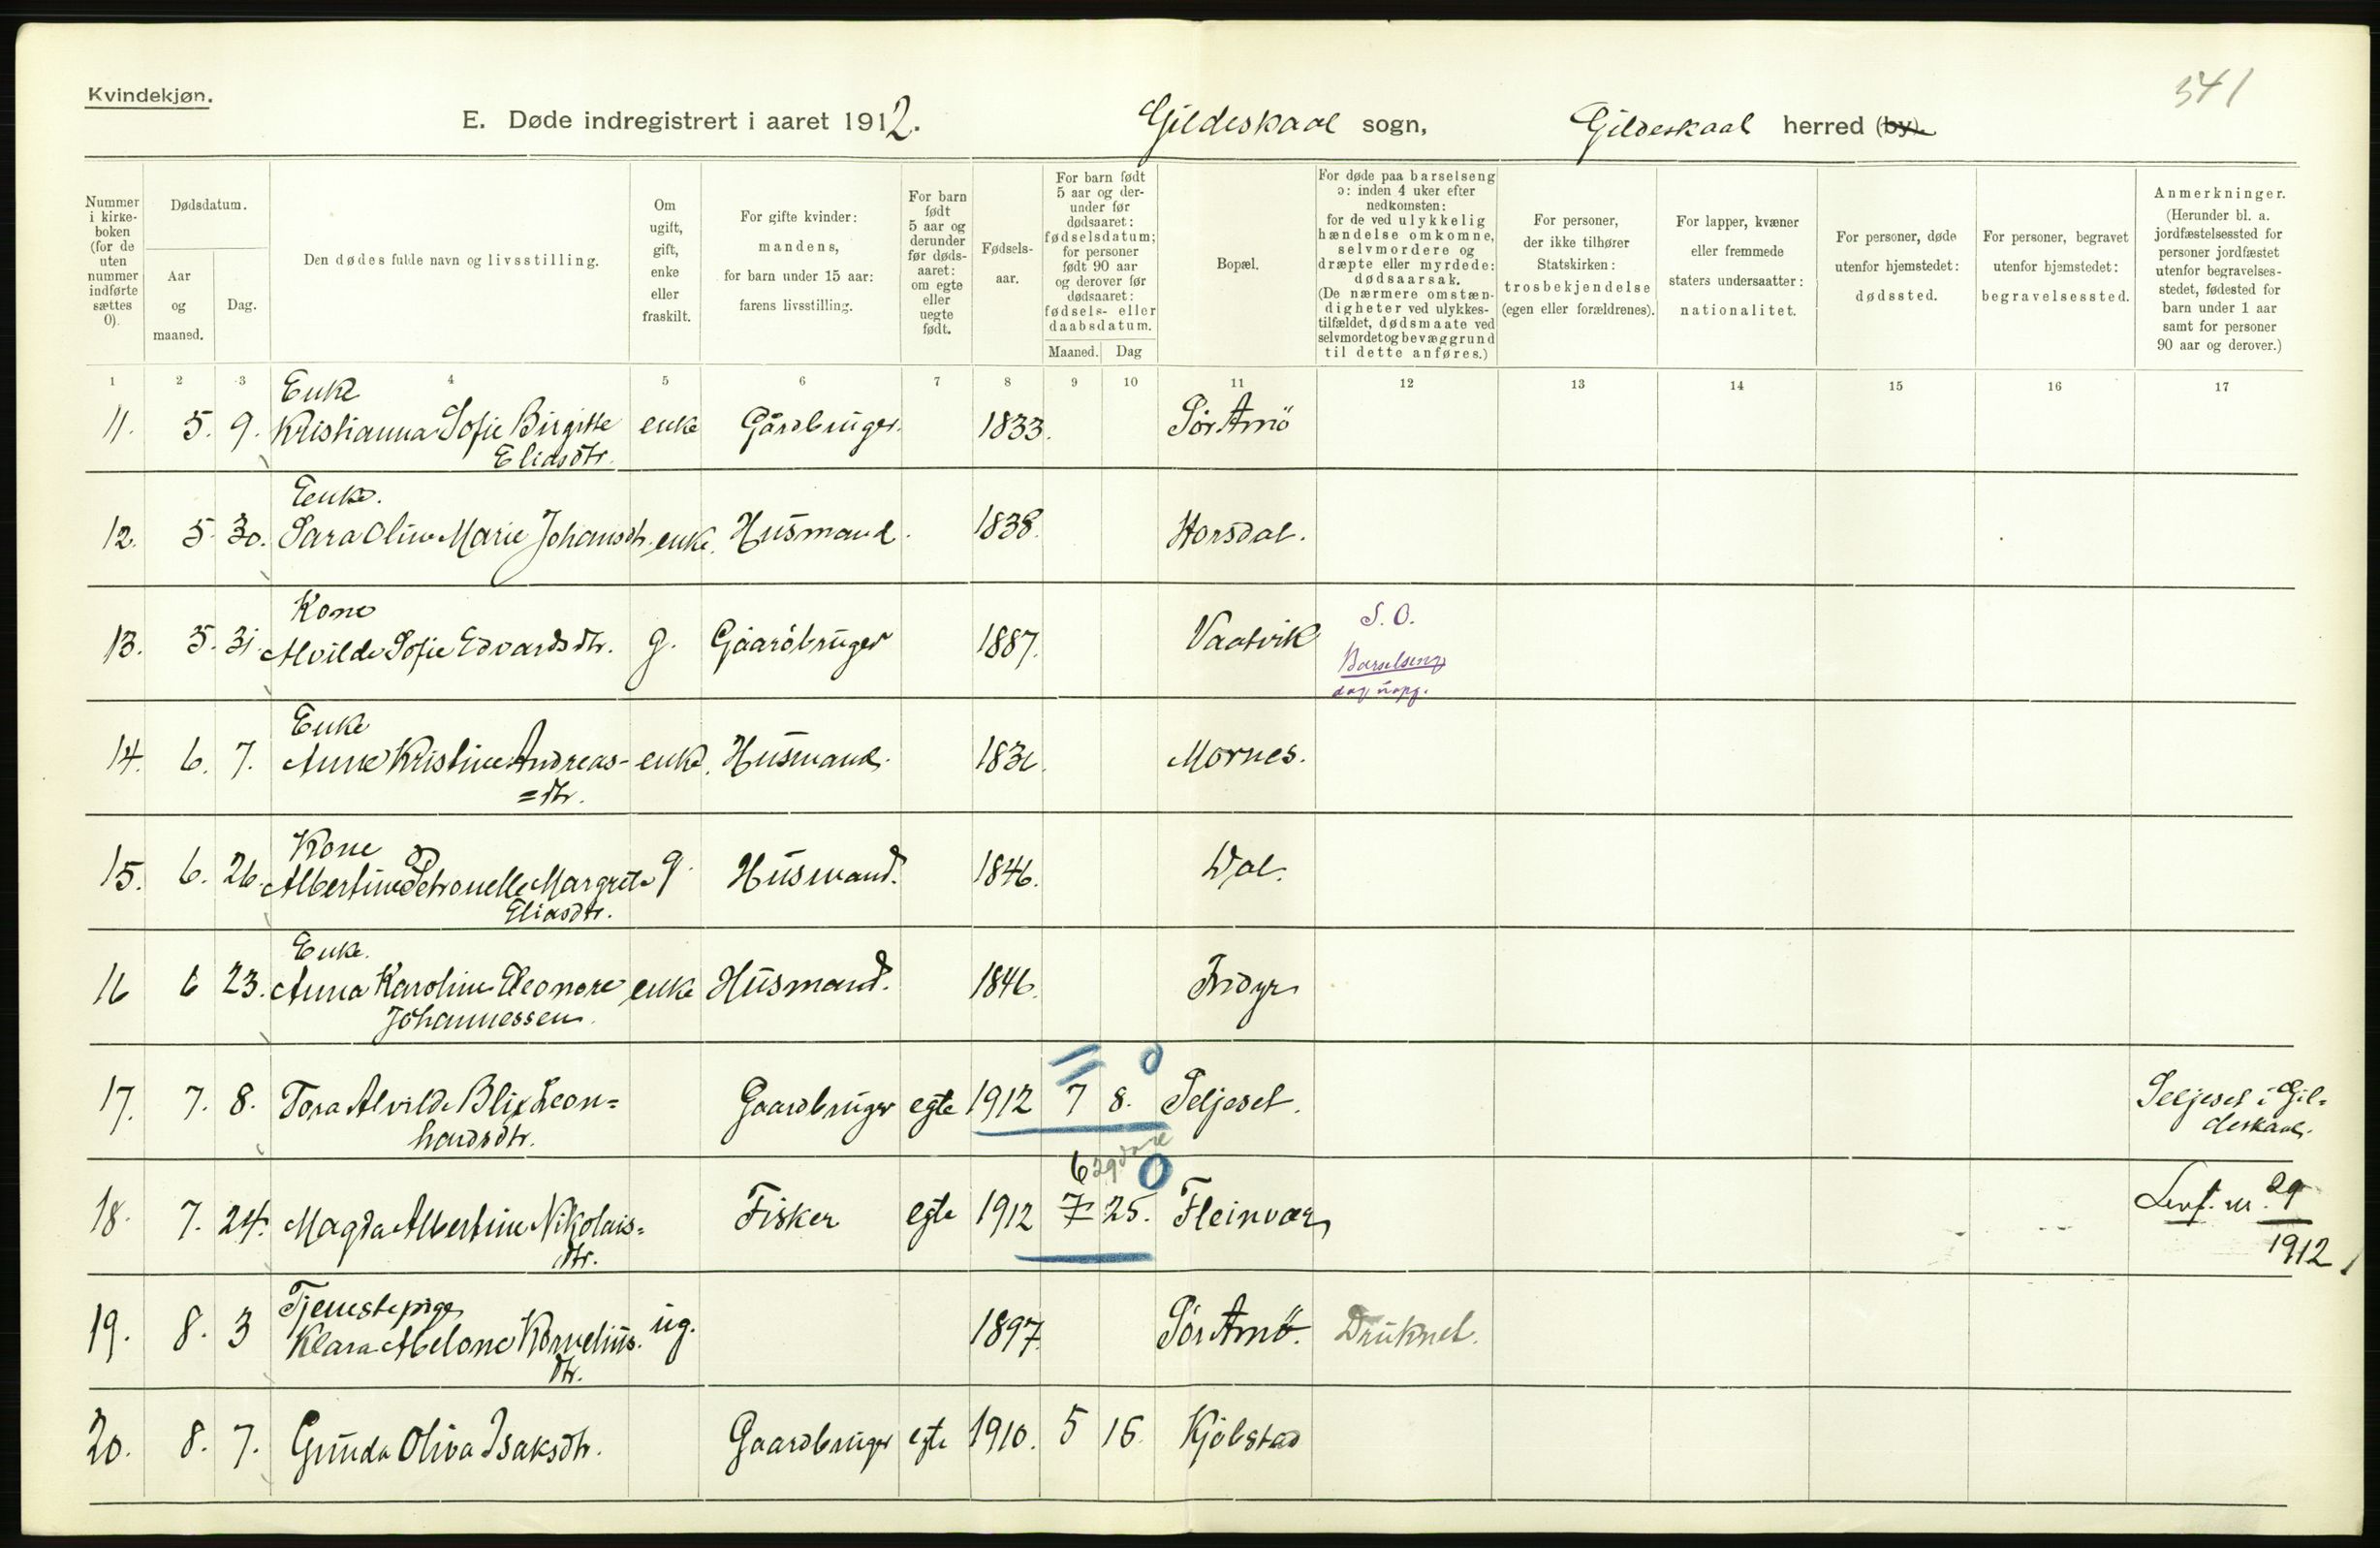 Kvindekjøn.
341
E. Døde indregistrert i aaret 1912.
Gildeskaal sogn,
Gildeskaal herred (by).
Nummer i kirke-boken (for de uten nummer indførte sættes 0).
Dødsdatum.
Aar og maaned.
Dag.
Den dødes fulde navn og livsstilling.
Om ugift, gift, enke eller fraskilt.
For gifte kvinder: mandens, for barn under 15 aar: farens livsstilling.
For barn født 5 aar og derunder før døds-aaret: om egte eller uegte født.
Fødsels-aar.
For barn født 5 aar og der-under før dødsaaret: fødselsdatum; for personer født 90 aar og derover før dødsaaret: fødsels- eller daabsdatum.
Maaned.
Dag
Bopæl.
For døde paa barselseng ɔ: inden 4 uker efter nedkomsten: for de ved ulykkelig hændelse omkomne, selvmordere og dræpte eller myrdede: dødsaarsak. (De nærmere omstæn-digheter ved ulykkes-tilfældet, dødsmaate ved selvmordet og bevæggrund til dette anføres.)
For personer, der ikke tilhører Statskirken: trosbekjendelse (egen eller forældrenes).
For lapper, kvæner eller fremmede staters undersaatter: nationalitet.
For personer, døde utenfor hjemstedet: dødssted.
For personer, begravet utenfor hjemstedet: begravelsessted.
Anmerkninger. (Herunder bl. a. jordfæstelsessted for personer jordfæstet utenfor begravelses-stedet, fødested for barn under 1 aar samt for personer 90 aar og derover.)
1 2 3 4 5 6 7 8 9 10 11 12 13 14 15 16 17
Enke
11. 5. 9. Kristianna Sofie Birgitte enke Gårdbruger. 1833. Sør Arnö
Eliasdtr.
Enke.
12. 5. 30. Sara Oline Marie Johansdtr. enke. Husmand. 1838. Horsdal.
Kone
13. 5. 31. Alvilde Sofie Edvardsdtr. g. Gaardbruger 1887. Vaatvik S. O.
Barselseng
dag uopg.
Enke
14. 6. 7. Anne Kristine Andreas- enke. Husmand. 1831. Mörnes.
=dtr.
Kone
15. 6. 26. Albertine Petronelle Margrete g. Husmand. 1846. Dal.
Eliasdtr.
Enke.
16 6 23. Anna Karoline Eleonore enke Husmand. 1846. Indyr
Johannessen.
17. 7. 8. Tora Alvilde Blix Leon= Gaardbruger egte 1912 7 8. Seljeset. Seljeset i Gil=
hardsdtr. deskaal.
6 29
18. 7. 24. Magda Albertine Nikolais= Fisker egte 1912 7 25. Fleinvær Levf. nr. 29
dtr. 1912
Tjenestepige
19. 8. 3 Klara Abelone Kornelius. ug. 1897. Sör Arnö. Druknet.
dtr.
20. 8. 7. Gunda Oliva Isaksdtr. Gaardbruger egte 1910. 5 16. Kjölstad